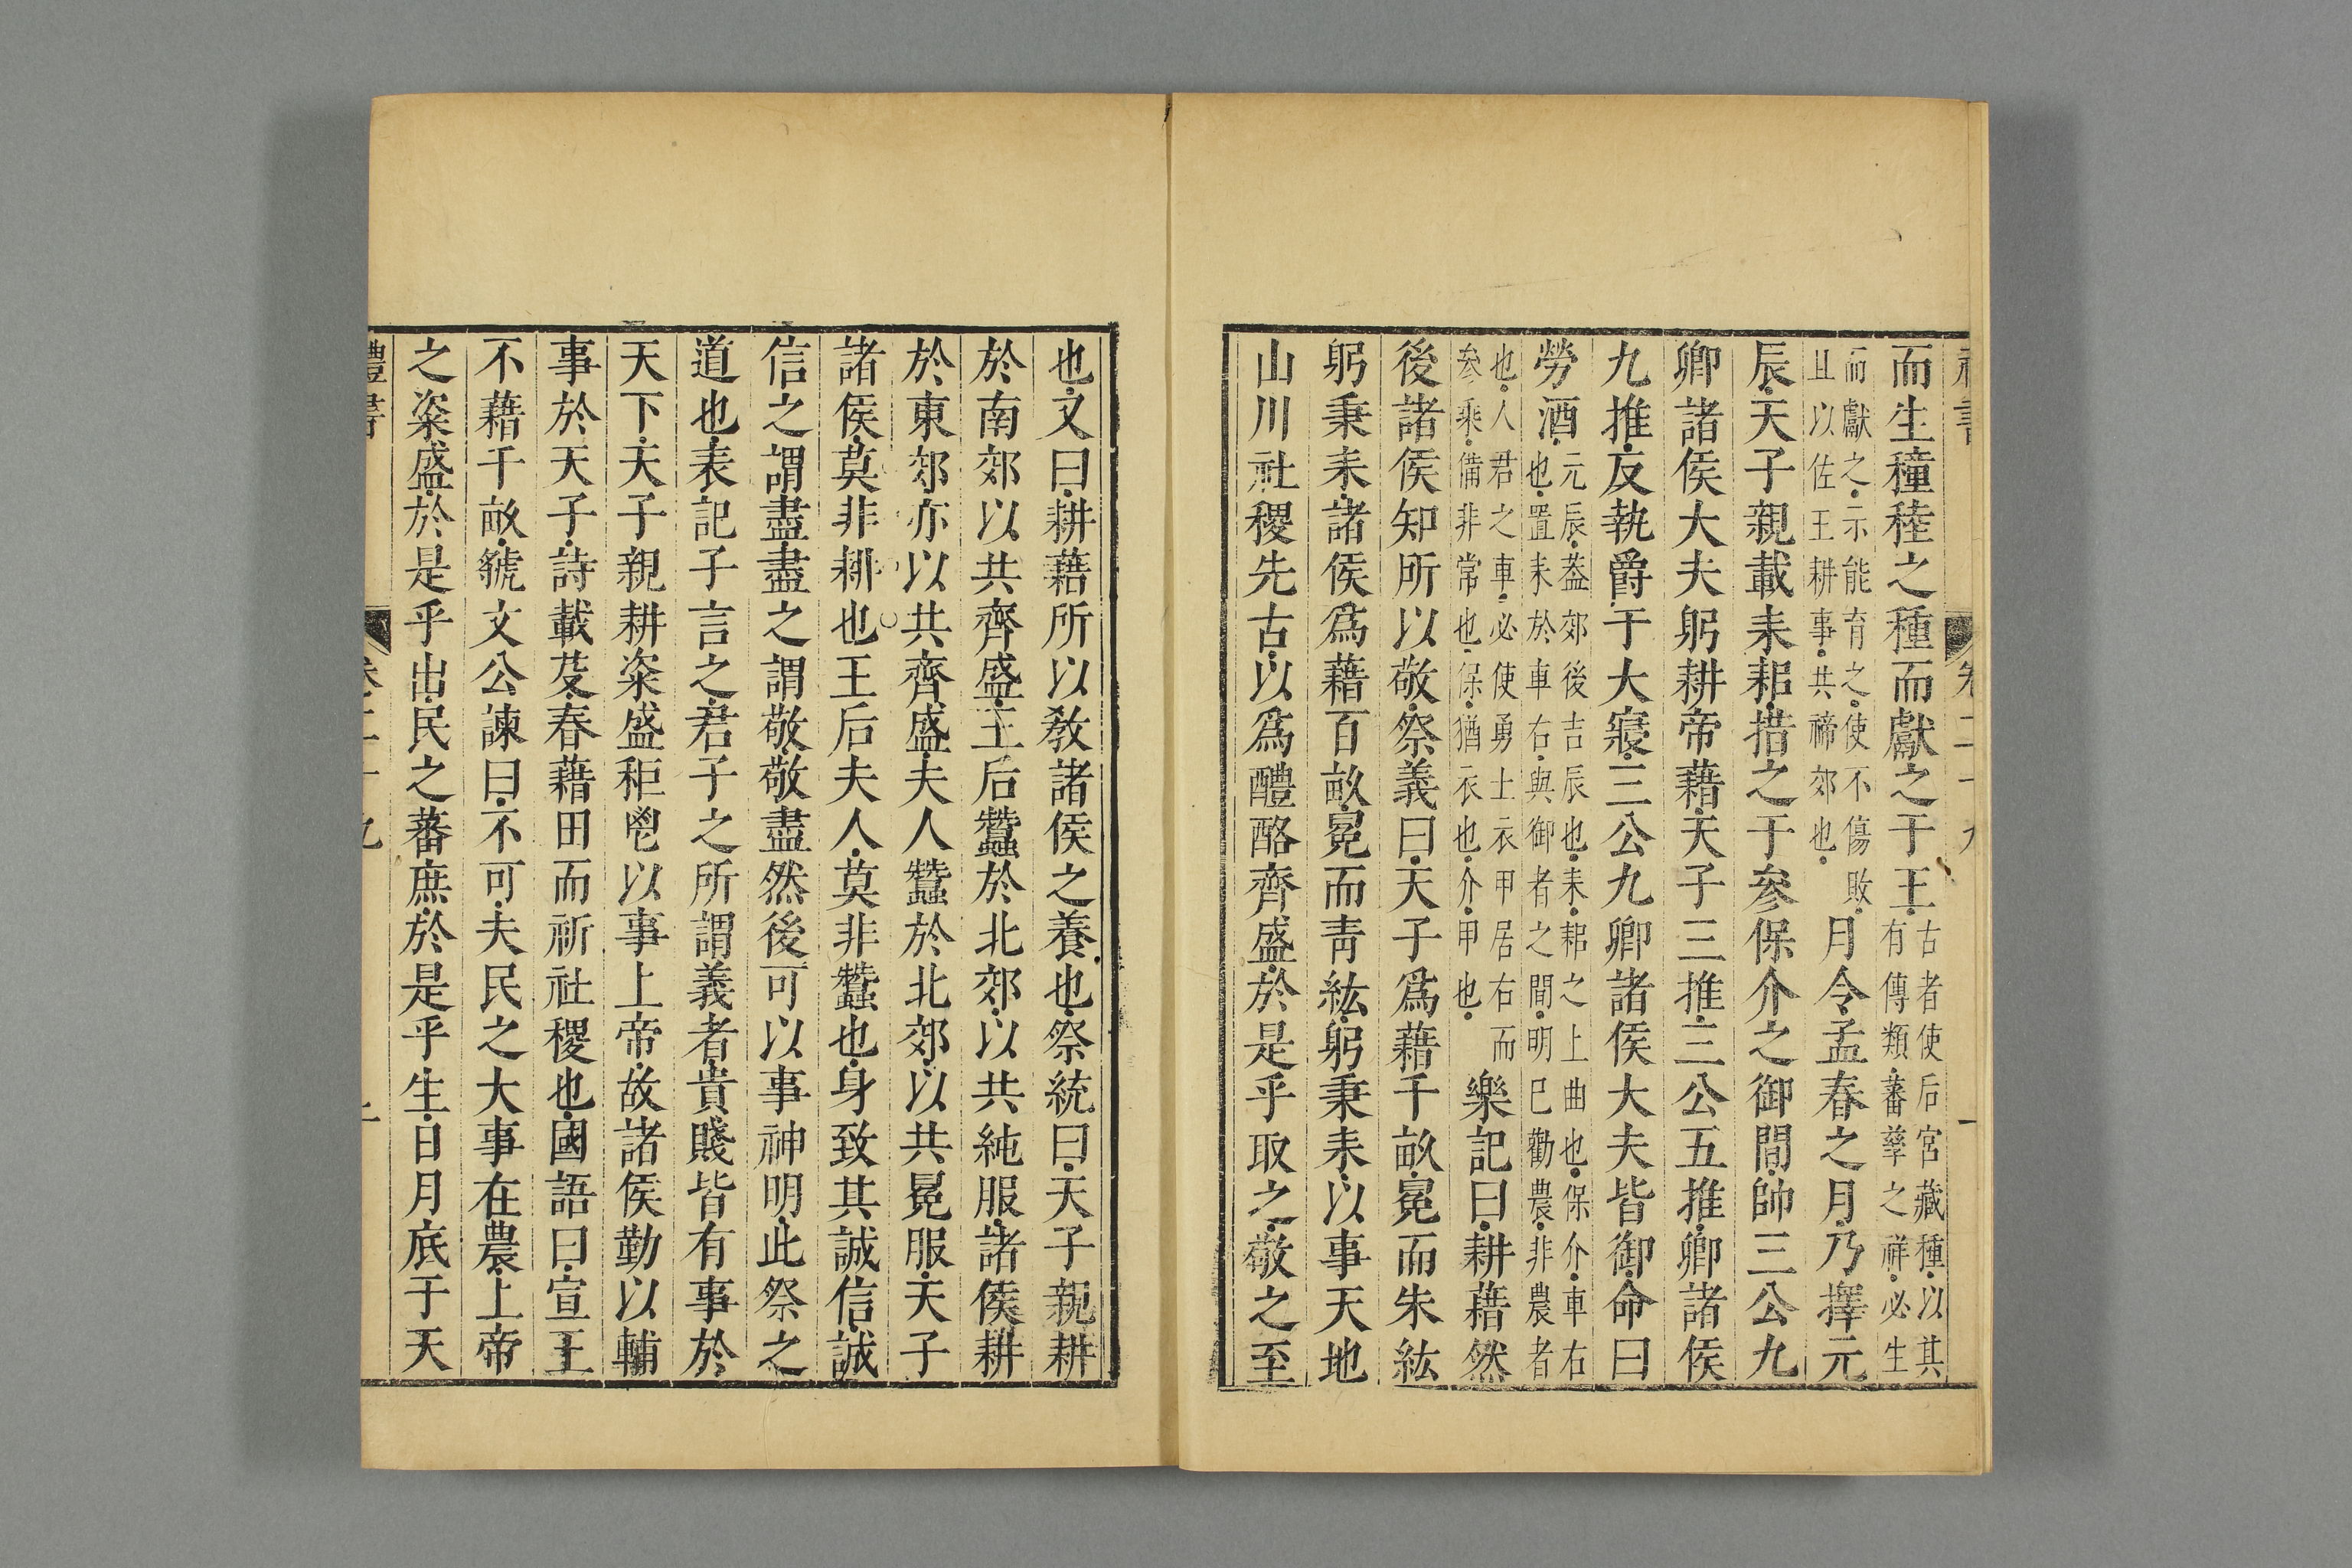 而生穜稑之種而獻之于王古者使后宮藏種以其有傳類蕃孳之祥必生
而獻之示能育之使不傷敗且以佐王耕事共禘郊也月令孟春之月乃擇元
辰天子親載耒耜措之于參保介之御間帥三公九
卿諸侯大夫躬耕帝藉天子三推三公五推卿諸侯
九推反執爵于大寢三公九卿諸侯大夫皆御命曰
勞酒元辰葢郊後吉辰也耒耜之上曲也保介車右也置耒於車右與御者之間明已勸農非農者
也人君之車必使勇士衣甲居右而參乘備非常也保猶衣也介甲也樂記曰耕藉然
後諸侯知所以敬祭義曰天子爲藉千畝冕而朱紘
躬秉耒諸侯爲藉百畝冕而靑紘躬秉耒以事天地
山川社稷先古以爲醴酪齊盛於是乎取之敬之至
也又曰耕藉所以敎諸侯之養也祭統曰天子親耕
於南郊以共齊盛王后蠶於北郊以共純服諸侯耕
於東郊亦以共齊盛夫人蠶於北郊以共冕服天子
諸侯莫非耕也王后夫人莫非蠶也身致其誠信誠
信之謂盡盡之謂敬敬盡然後可以事神明此祭之
道也表記子言之君子之所謂義者貴賤皆有事於
天下天子親耕粢盛秬鬯以事上帝故諸侯勤以輔
事於天子詩載芟春藉田而祈社稷也國語曰宣王
不藉千畝虢文公諫曰不可夫民之大事在農上帝
之粢盛於是乎出民之蕃庶於是乎生日月底于天
禮書 卷二十九 二